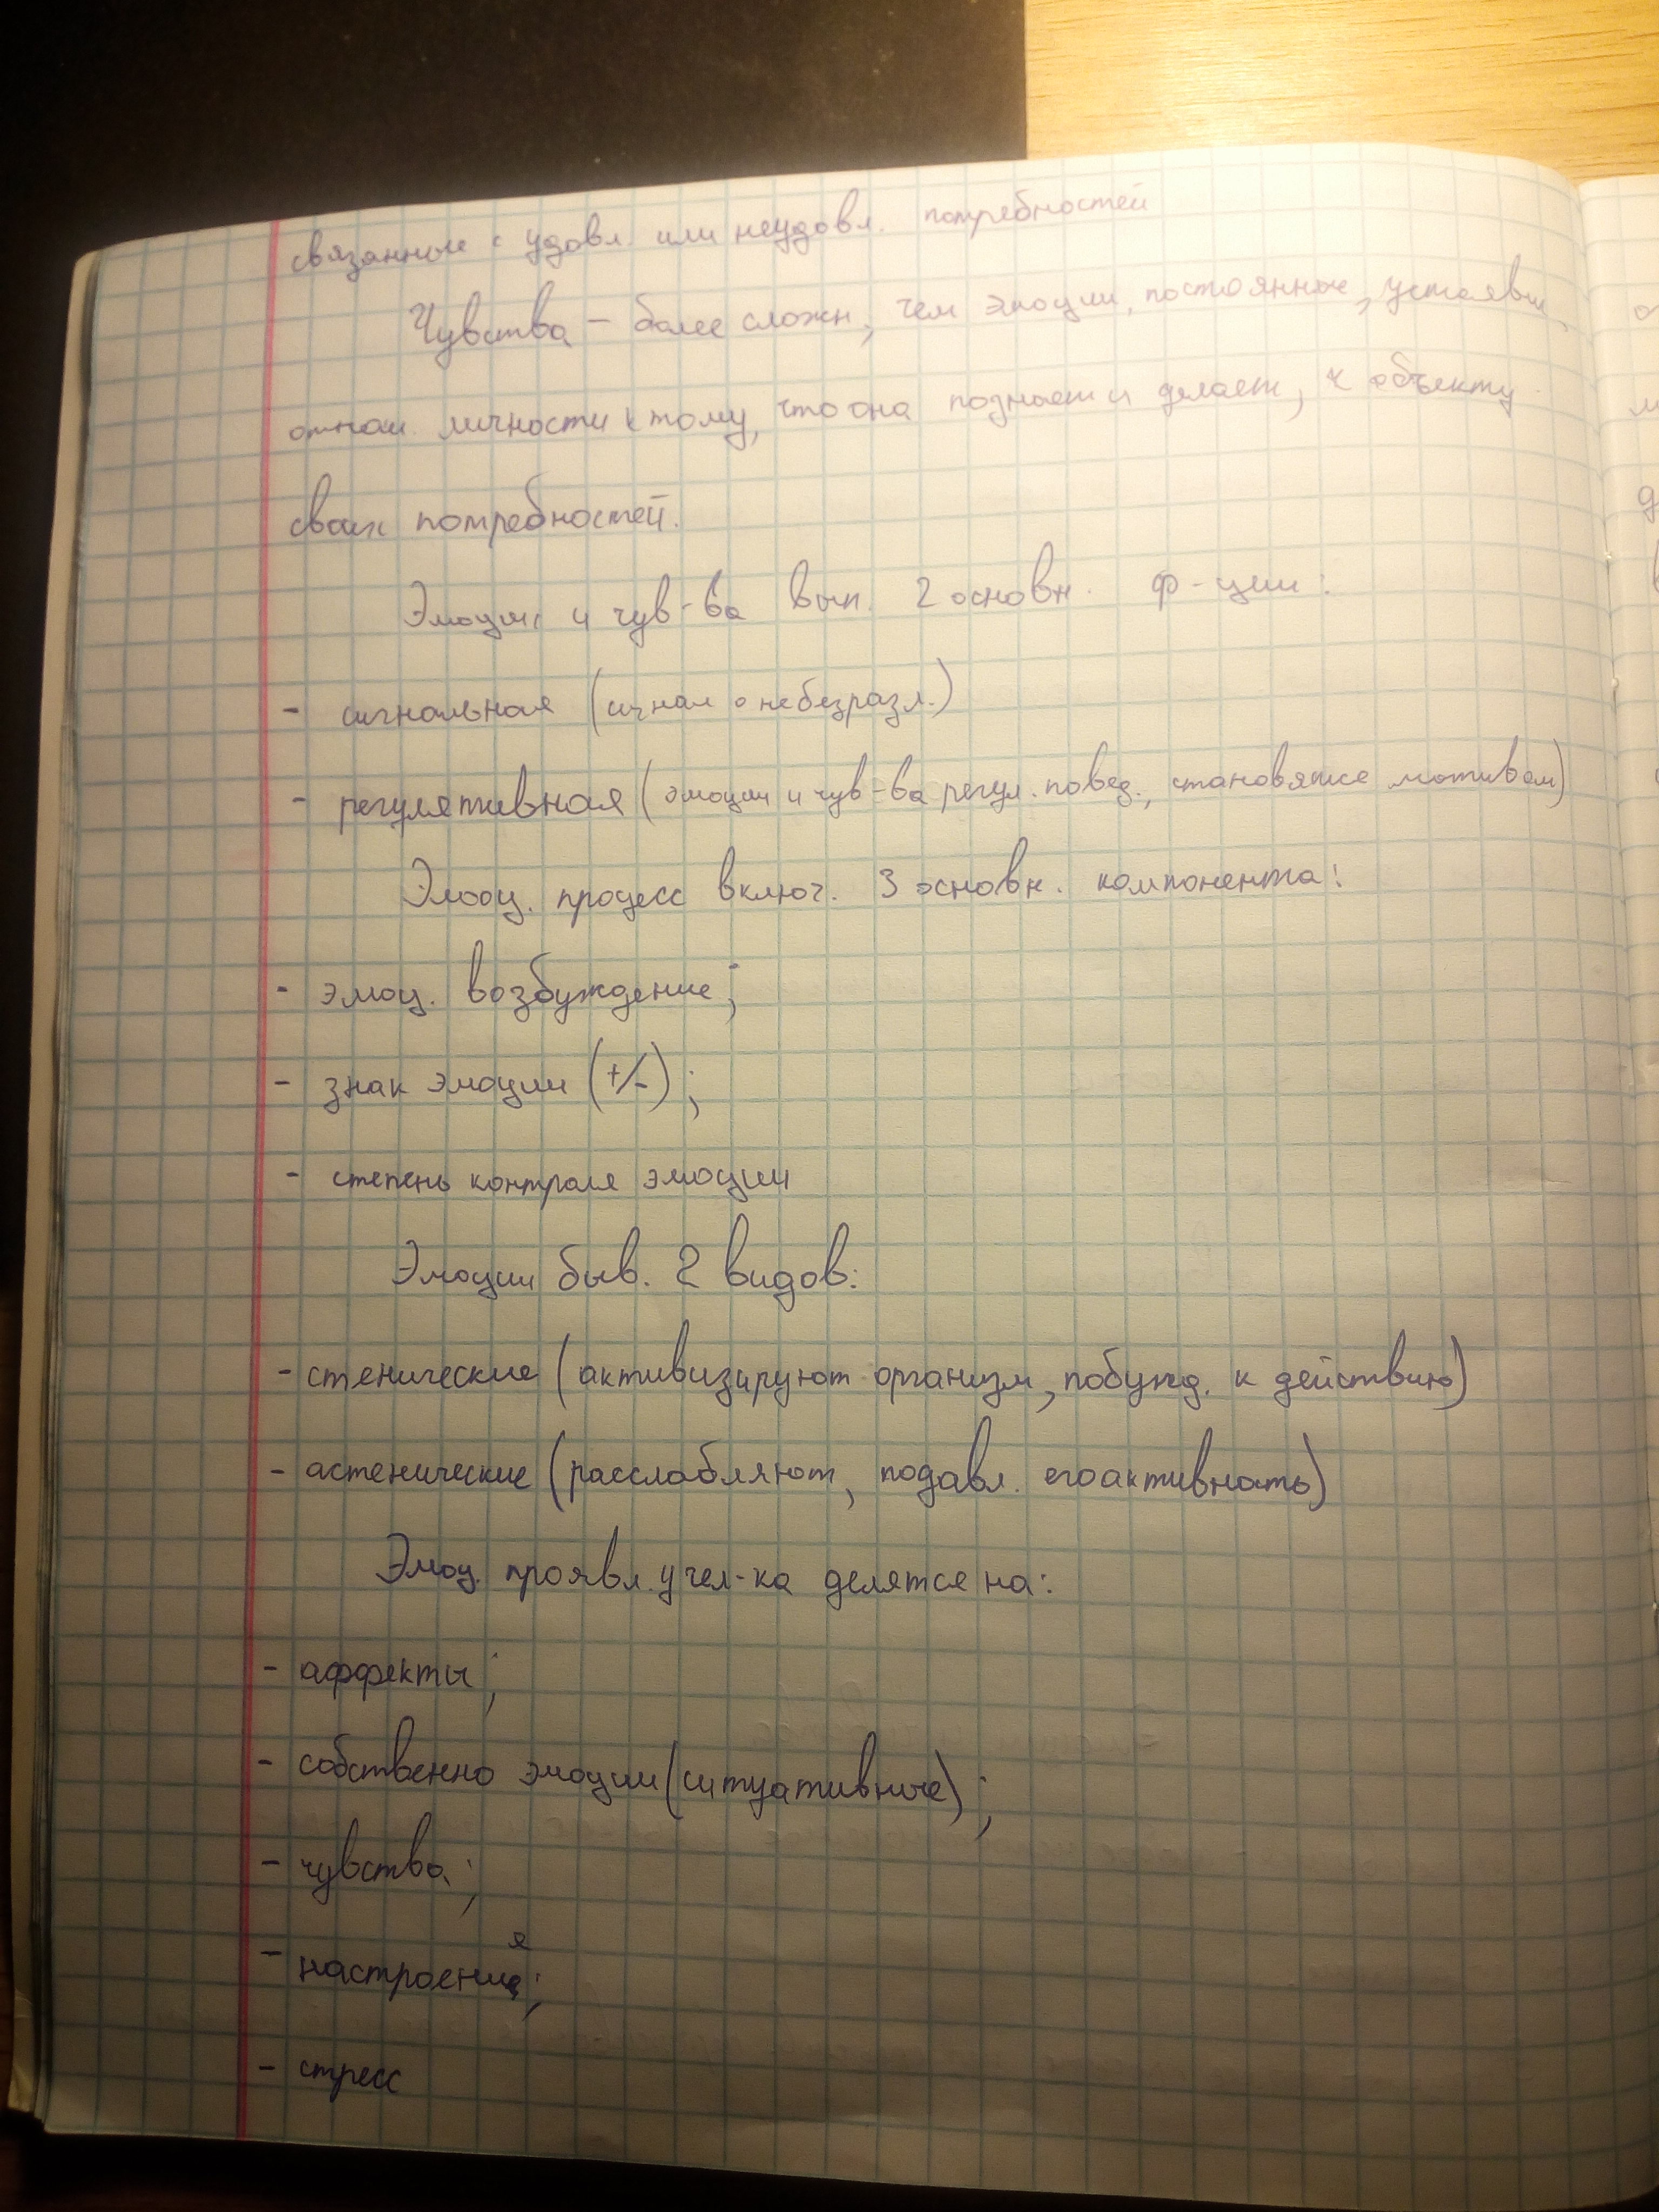 связанные с удовл. или неудовл. потребностей
Чувства – более сложн, чем эмоции, постоянные, устоявш.
отнош. личности к тому, что она познает и делает, к объекту
своих потребностей.
Эмоции и чув-ва вып. 2 основн. ф-ции:
- сигнальная (сигнал о небезразл.)
- регулятивная (эмоции и чув-ва регул. повед., становятся мотивом)
Эмооц. процесс включ. 3 основн. компонента:
- эмоц. возбуждение;
- знак эмоции (+/-);
- степень контроля эмоции
Эмоции быв. 2 видов:
- стенические (активизируют организм, побужд. к действию)
- астенические (расслабляют, подавл. его активность)
Эмоц. проявл. у чел-ка делятся на:
- аффекты;
- собственно эмоции (ситуативные);
- чувства;
- настроения;
- стресс